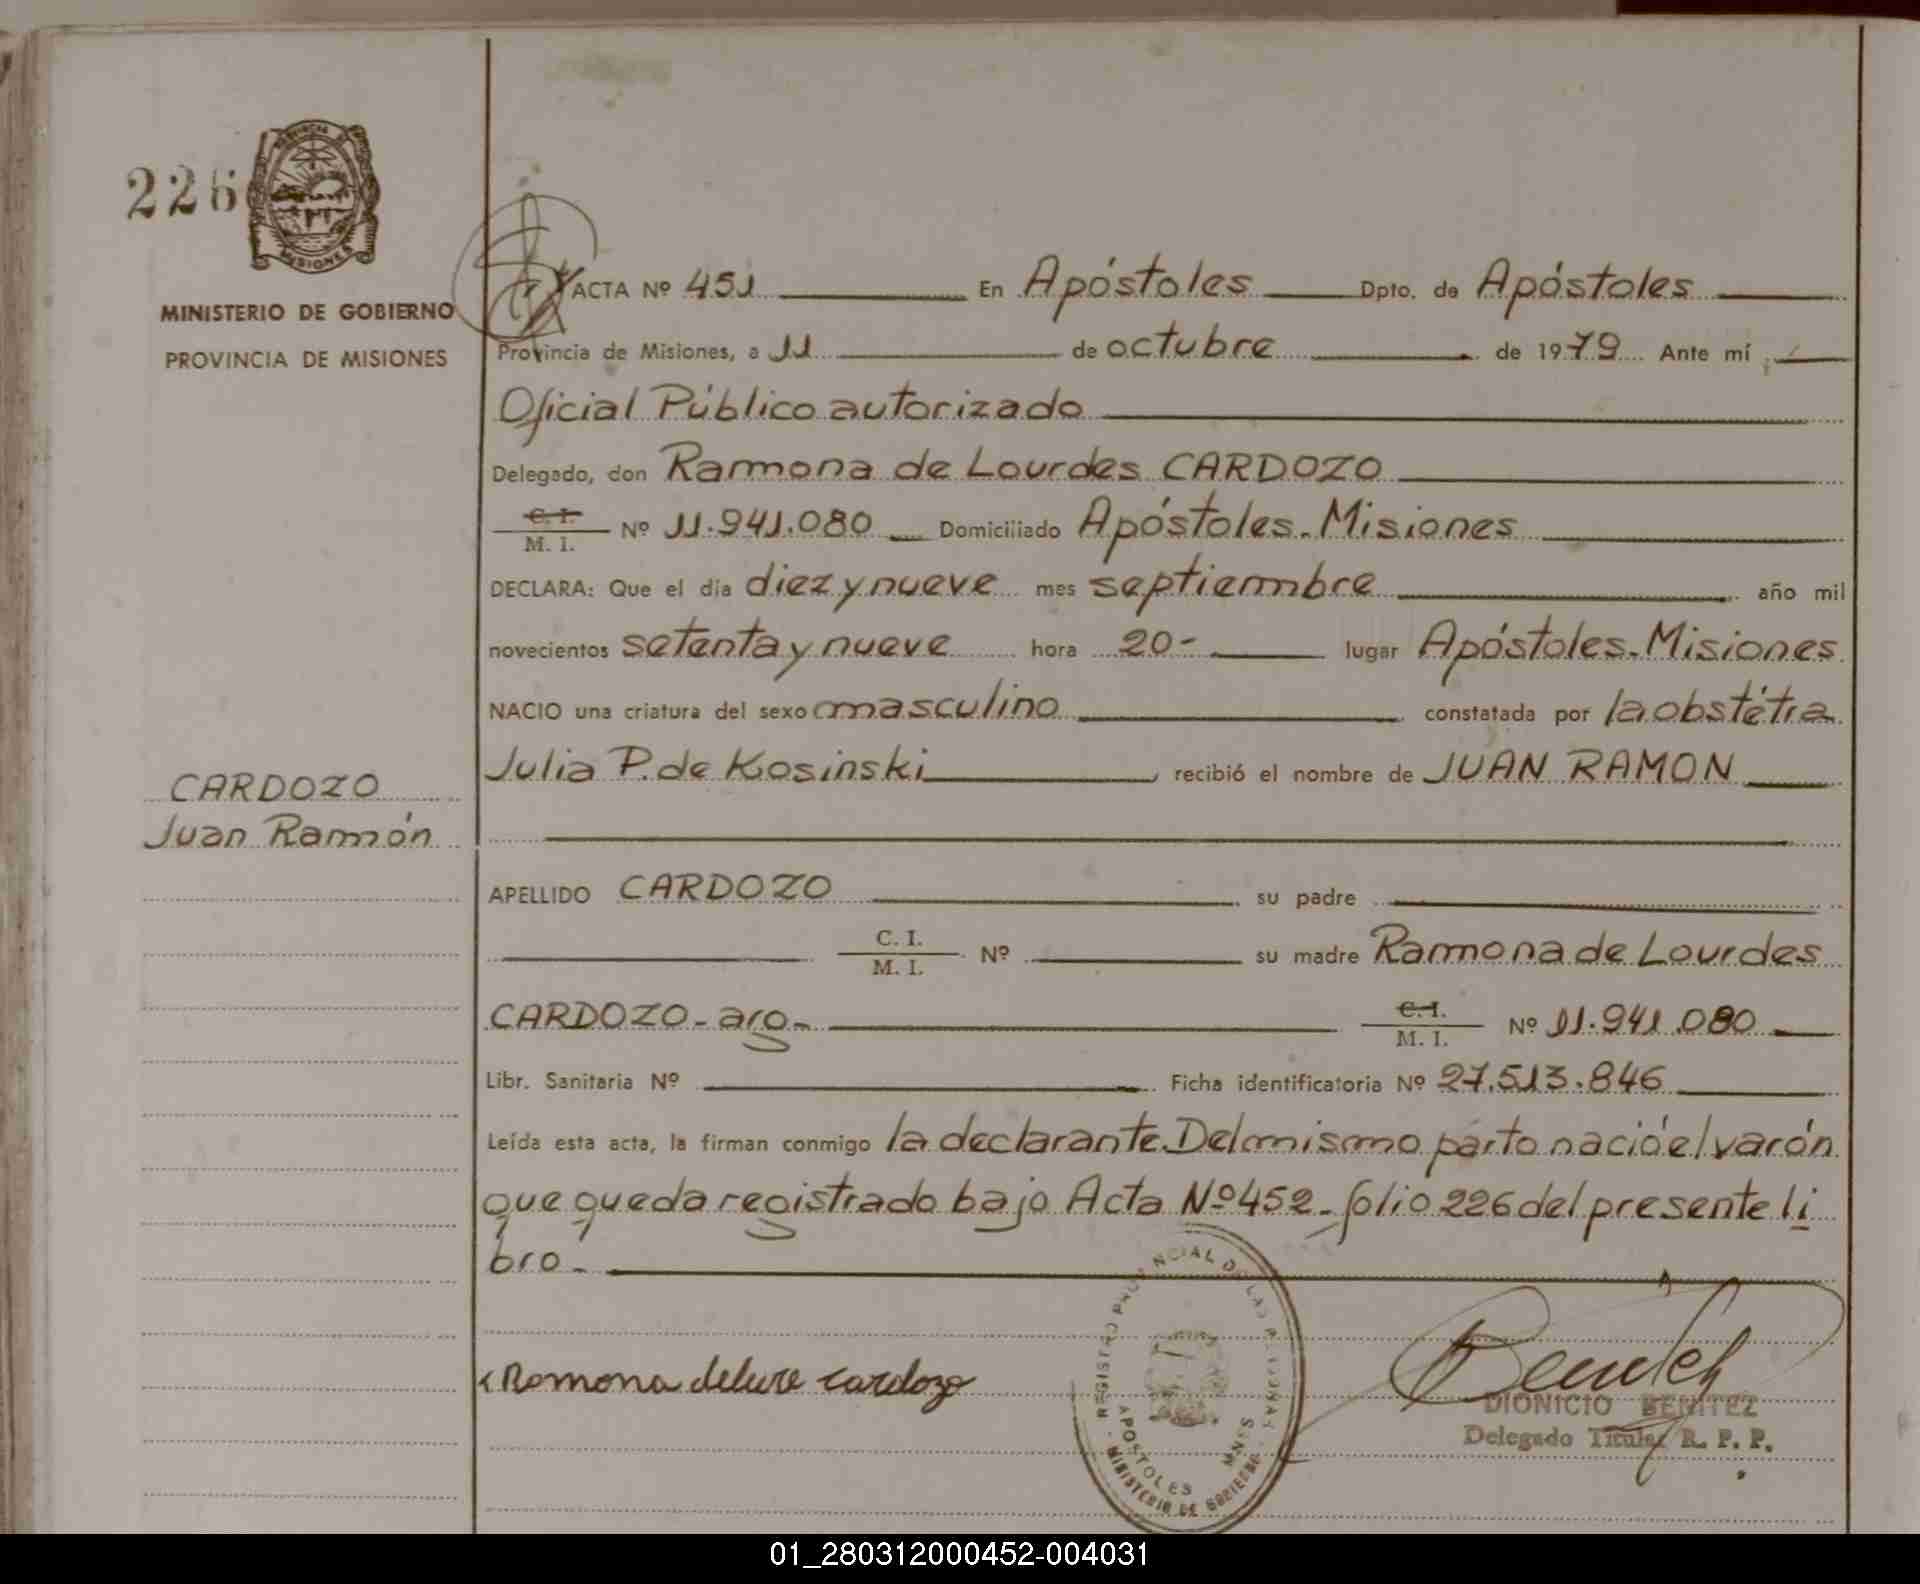 226
PROVINCIA DE
MISIONES
MINISTERIO DE GOBIERNO
PROVINCIA DE MISIONES
ACTA Nº 451 En Apóstoles Dpto. de Apóstoles
Provincia de Misiones, a 11 de octubre de 1979 Ante mí
Oficial Público autorizado
Delegado, don Ramona de Lourdes CARDOZO
C. I.
M. I. Nº 11.941.080 Domiciliado Apóstoles.-Misiones
DECLARA: Que el día diez y nueve mes septiembre año mil
novecientos setenta y nueve hora 20- lugar Apóstoles.-Misiones
NACIO una criatura del sexo masculino constatada por la obstétra
Julia P. de Kosinski recibió el nombre de JUAN RAMON
CARDOZO
Juan Ramón
APELLIDO CARDOZO su padre
C. I.
M. I. Nº su madre Ramona de Lourdes
CARDOZO-arg- C. I.
M. I. Nº 11.941.080
Libr. Sanitaria Nº Ficha identificatoria Nº 27.513.846
Leída esta acta, la firman conmigo la declarante. Del mismo parto nació el varón
que queda registrado bajo Acta Nº 452-folio 226 del presente li
bro-
Ramona delure cardozo
REGISTRO PROVINCIAL DE LAS PERSONAS
APOSTOLES MNES
MINISTERIO DE GOBIERNO
DIONICIO BENITEZ
Delegado Titular R. P. P.
01_280312000452-004031